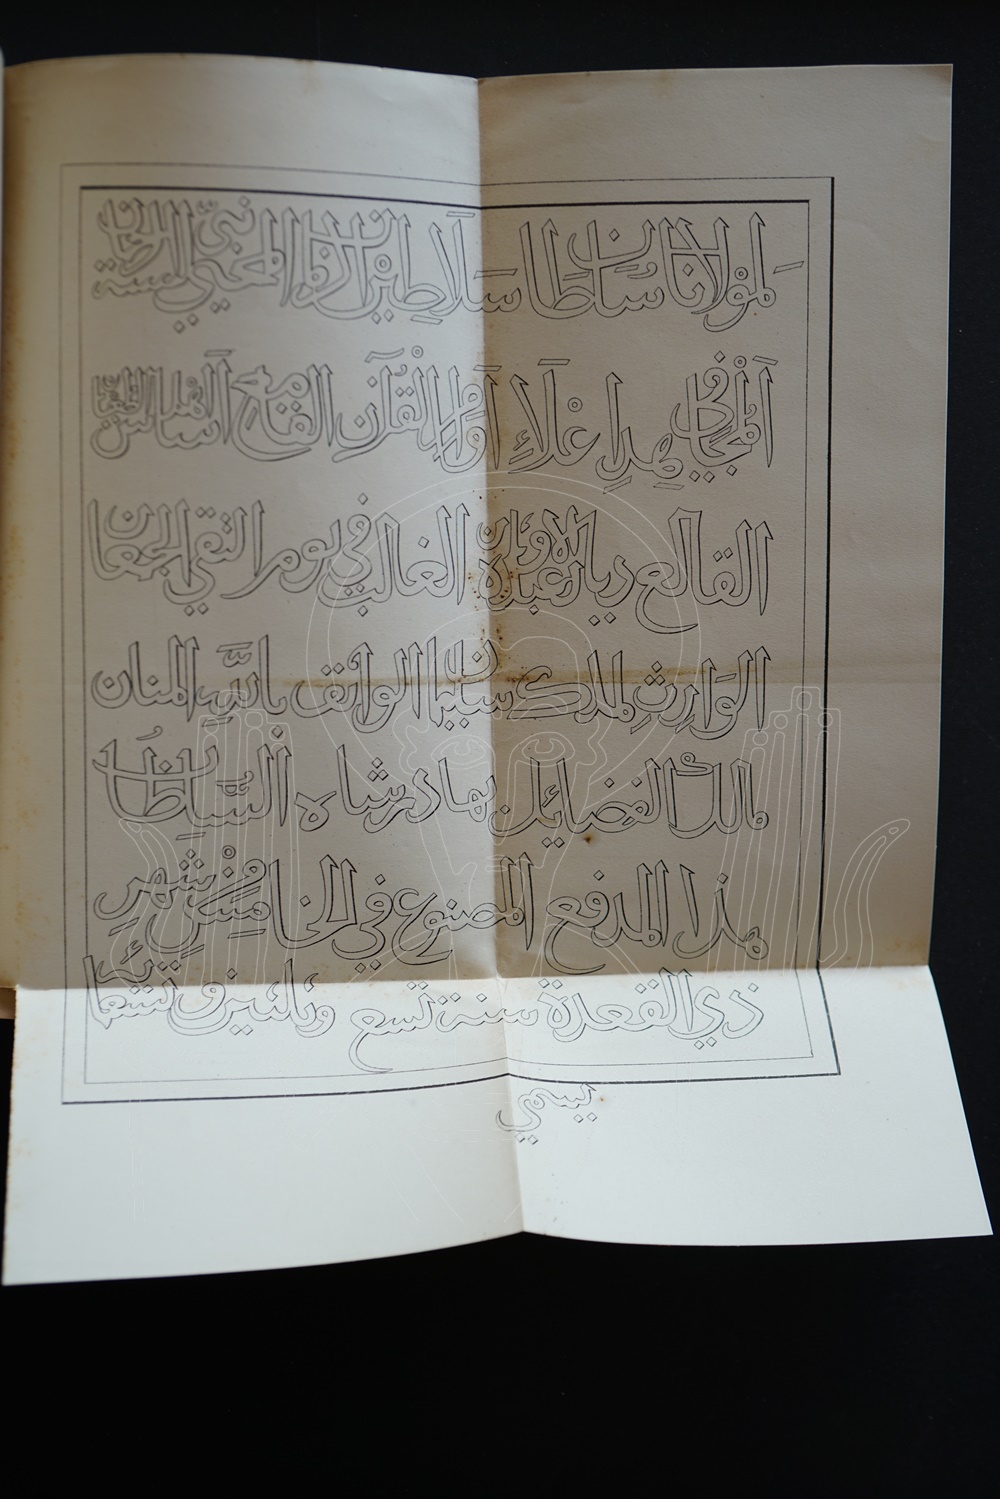 لمولانا سلطان سلاطين الزمان المحيي سنة نبي الرحمان
المجاهد في إعلاء أوامر القرآن القامع أساس أهل الطغيان
القالع ديار عبدة الاوثان الغالب في يوم التقى الجمعان
الوارث لملك سليمان الواثق بالله المنان
مالك الفضايل بهادرشاه السلطان
هذا المدفع المصنوع في الخامس من شهر
ذي القعدة سنة تسع وثلثين وتسعمائة
يسمي